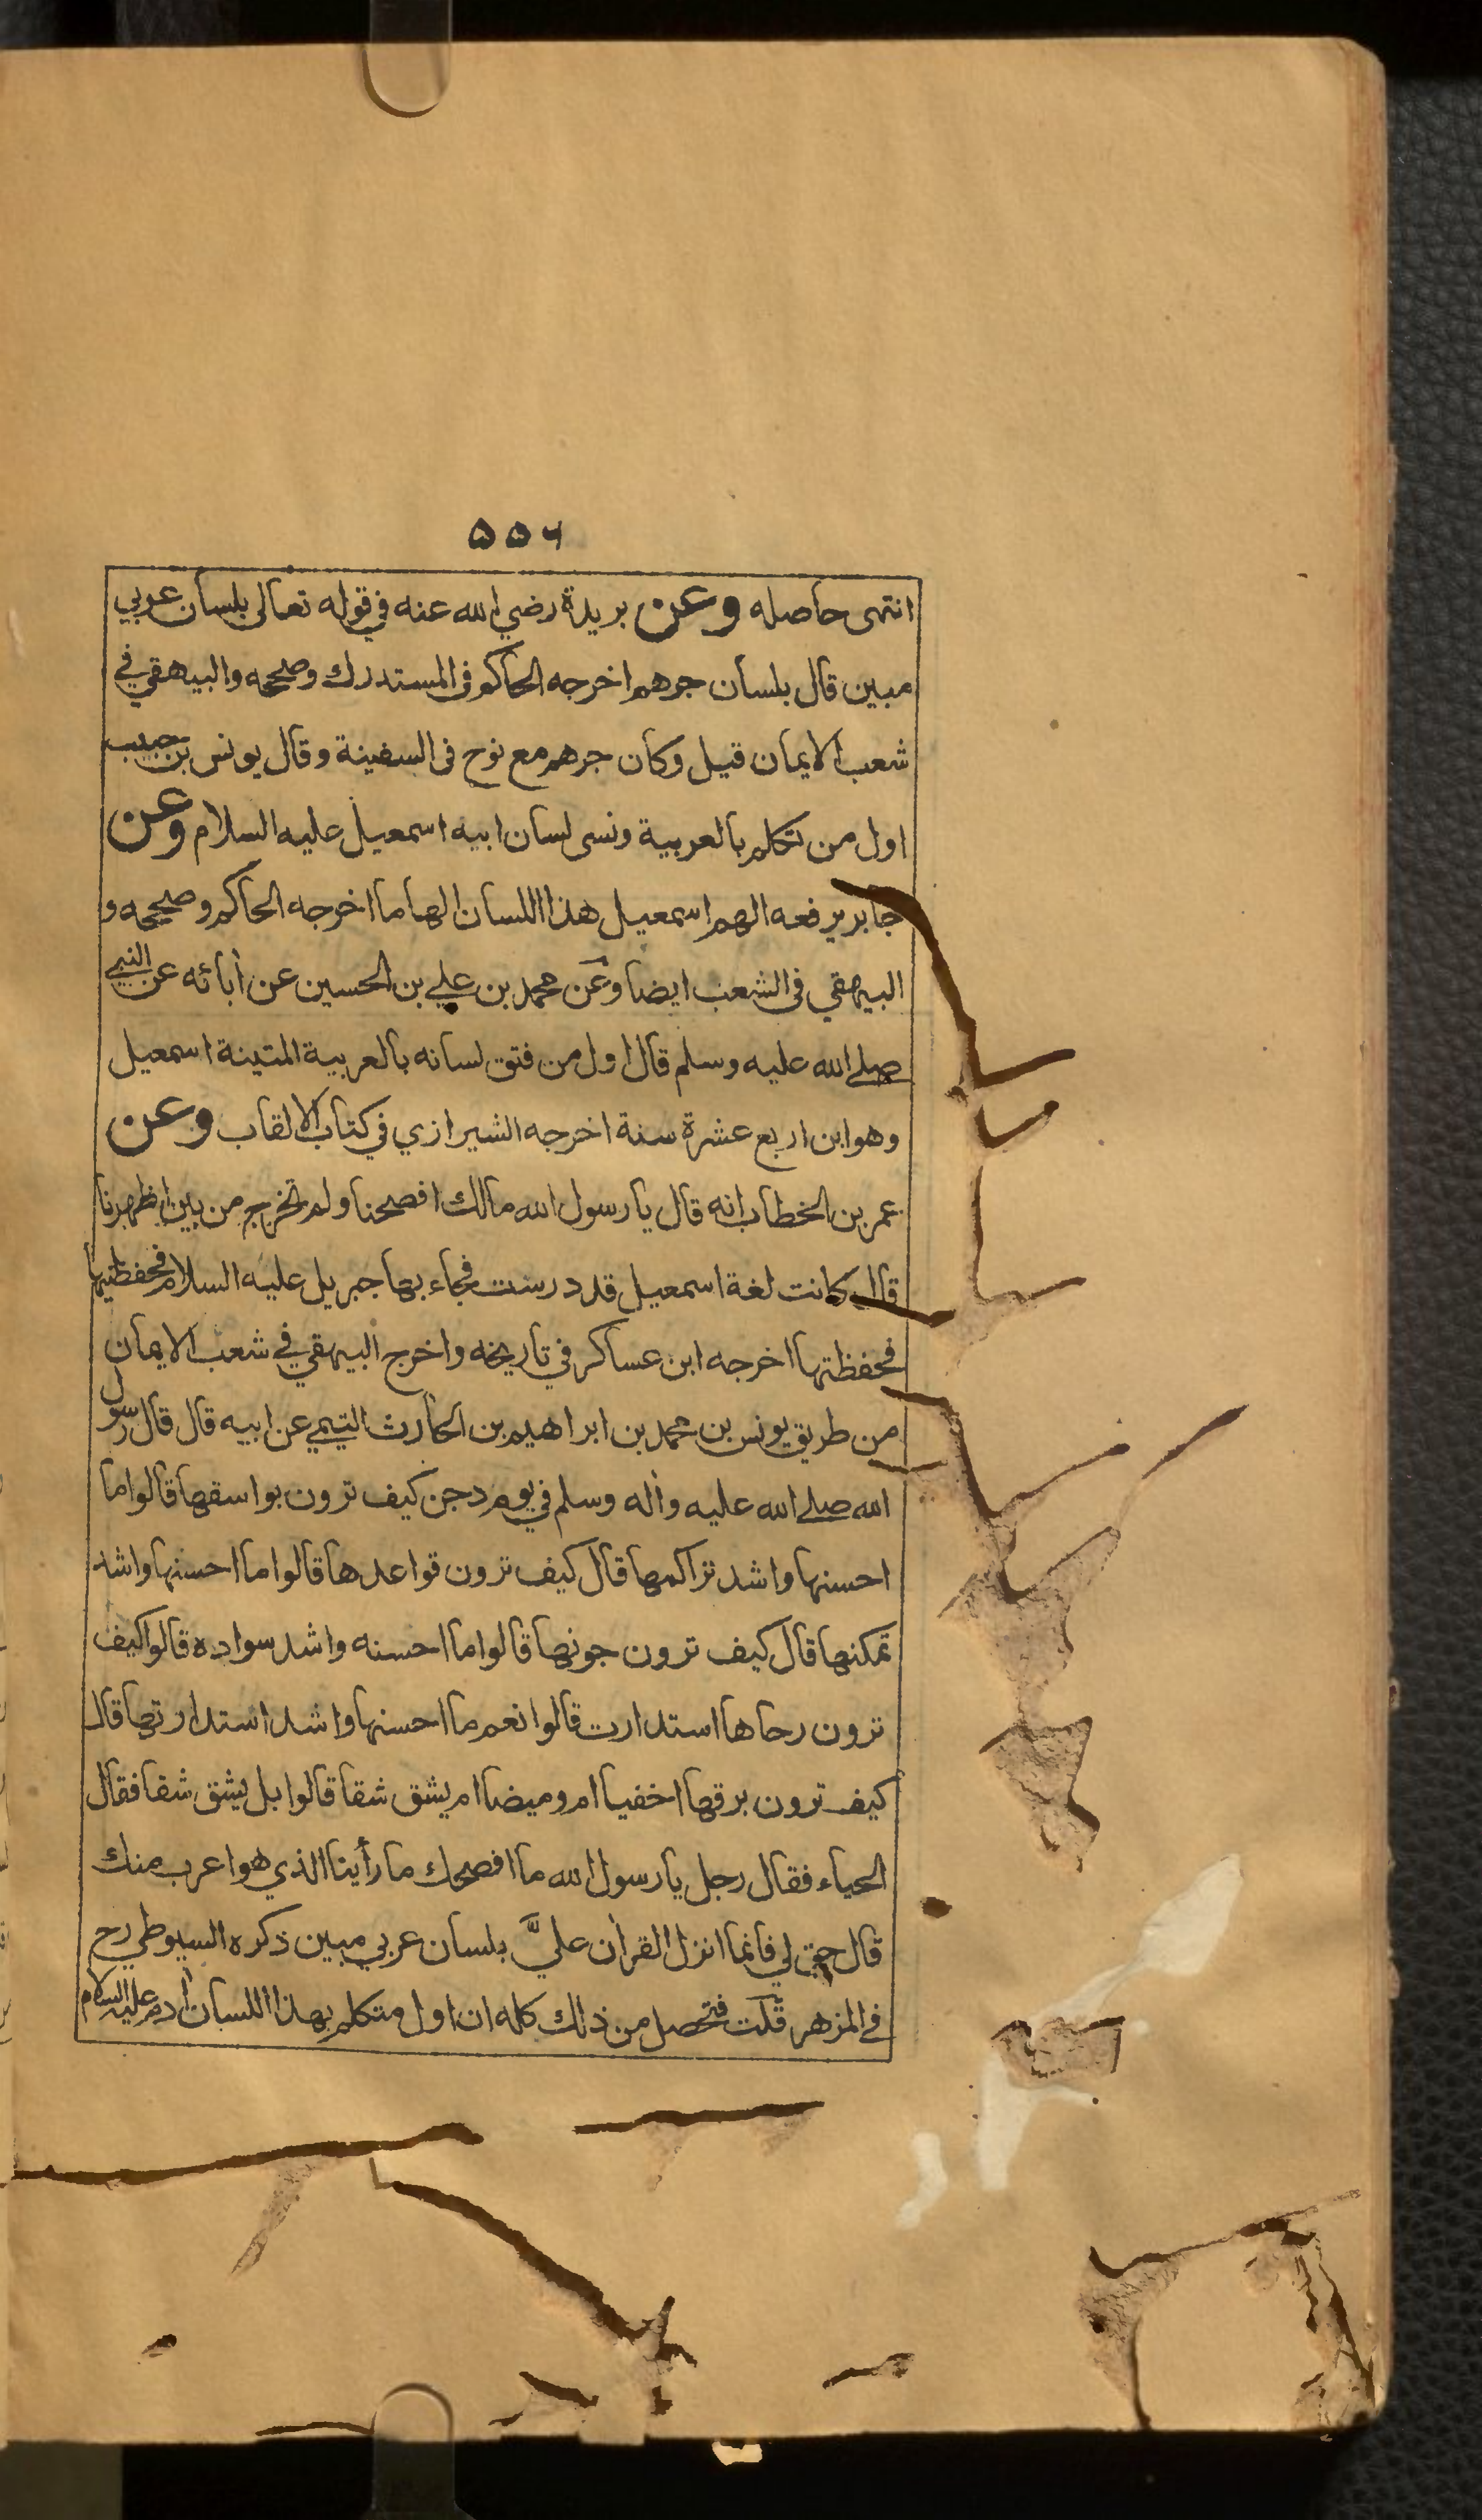 ۵۵۶
انتهى حاصله وعن بريدة رضي الله عنه في قوله تعالى بلسان عربي
مبين قال بلسان جرهم اخرجه الحاكم فى المستدرك وصححه والبيهقي في
شعب الايمان قيل وكان جرهم مع نوح فى السفينة وقال يونس بن حبيب
اول من تكلم بالعربية ونسى لسان ابيه اسمعيل عليه السلام وعن
جابر يرفعه الهم اسمعيل هذا اللسان الهاما اخرجه الحاكم وصححه و
البيهقي فى الشعب ايضا وعن محمد بن علي بن الحسين عن أبائه عن النبي
صلى الله عليه وسلم قال اول من فتق لسانه بالعربية المتينة اسمعيل
وهو ابن اربع عشرة سنة اخرجه الشيرازي في كتاب الالقاب وعن
عمر بن الخطاب انه قال يا رسول الله مالك افصحنا ولم تخرج من بين اظهرنا
قال كانت لغة اسمعيل قد درست فجاء بها جبريل عليه السلام فحفظنيها
فحفظتها اخرجه ابن عساكر في تاريخه واخرج البيهقي في شعب الايمان
من طريق يونس بن محمد بن ابراهيم بن الحارث التيمي عن ابيه قال قال رسول
الله صلى الله عليه وأله وسلم في يوم دجن كيف ترون بواسقها قالوا ما
احسنها واشد تراكمها قال كيف ترون قواعدها قالوا ما احسنها واشد
تمكنها قال كيف ترون جونها قالوا ما احسنه واشد سواده قالوا كيف
ترون رحاها استدارت قالوا نعم ما احسنها واشد استدارتها قال
كيف ترون برقها اخفيا ام وميضا ام يشق شقا قالوا بل يشق شقا فقال
الحياء فقال رجل يا رسول الله ما افصحك ما رأينا الذي هو اعرب منك
قال حق لي فانما انزل القرأن عليَّ بلسان عربي مبين ذكره السيوطي رح
في المزهر قلت فتحصل من ذلك كله ان اول متكلم بهذا اللسان أدم عليه السلام